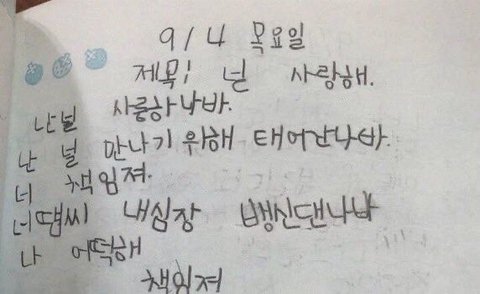 9/4 목요일
제목; 넌 사랑해.
난널 사룽하나바.
난 널 만나기 위해 태어난나바.
너 책임져.
너땜씨 내심장 뱅신댄나바
나 어떡해
책임져